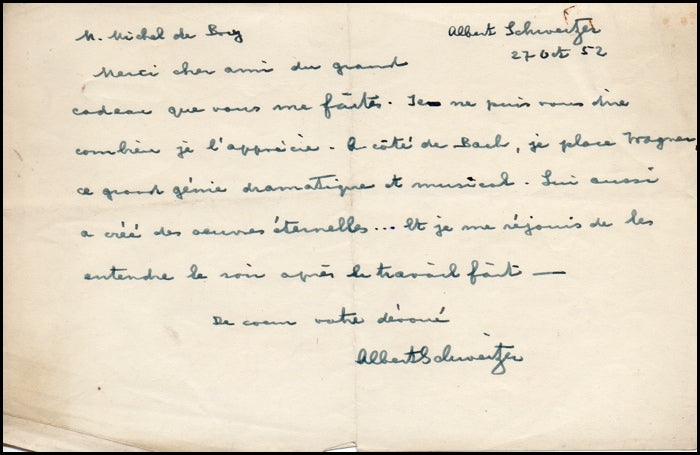 M. Michel de Bry
Albert Schweitzer
27 Oct 52
Merci cher ami du grand
cadeau que vous me faites. Je ne puis vous dire
combien je l'apprécie. A côté de Bach, je place Wagner,
ce grand génie dramatique et musical. Lui aussi
a créé des oeuvres éternelles... Et je me réjouis de les
entendre le soir après le travail fait —
De coeur votre dévoué
Albert Schweitzer